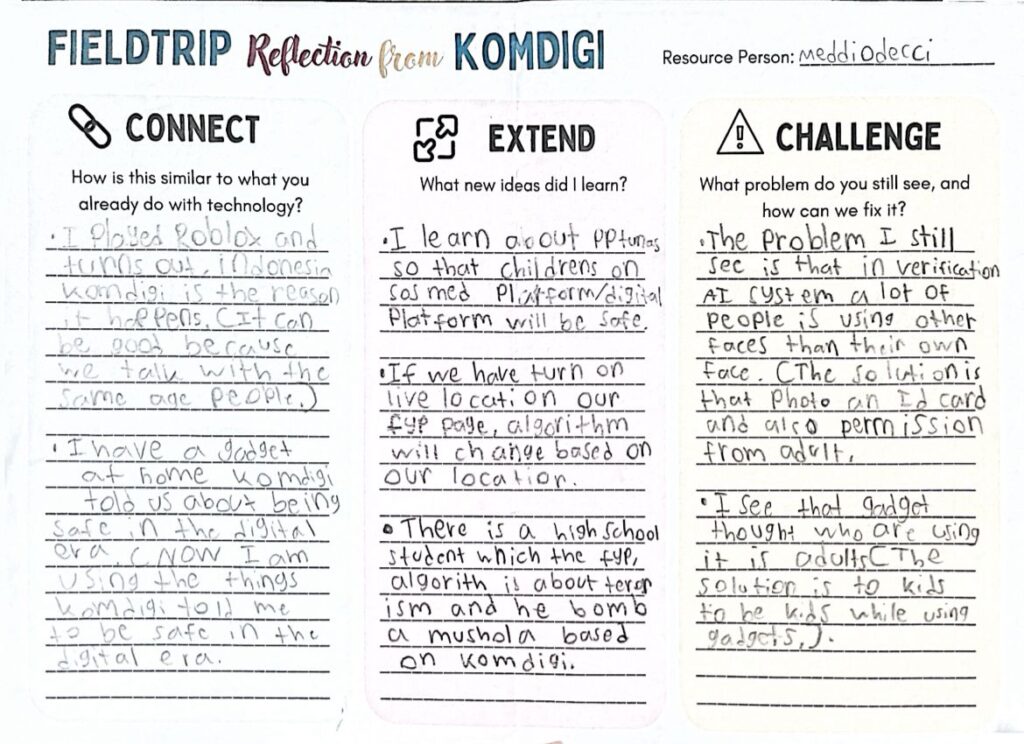 FIELDTRIP Reflection from KOMDIGI
Resource Person: meddiodecci
CONNECT
How is this similar to what you
already do with technology?
• I Played Roblox and
turns out, indonesia
komdigi is the reason
it happens. (It can
be good because
we talk with the
same age people.)
• I have a gadget
at home komdigi
told us about being
safe in the digital
era. (NOW I am
using the things
komdigi told me
to be safe in the
digital era.
EXTEND
What new ideas did I learn?
• I learn about PPtunas
so that childrens on
sosmed Platform/digital
Platform will be safe.
• If we have turn on
live location our
fyp page, algorithm
will change based on
our location.
• There is a high school
student which the fyp,
algorith is about teror
ism and he bomb
a mushola based
on komdigi.
CHALLENGE
What problem do you still see, and
how can we fix it?
• The Problem I still
see is that in verification
AI system a lot of
people is using other
faces than their own
face. (The solution is
that Photo an Id card
and also permission
from adult.
• I see that gadget
thought who are using
it is adults(The
solution is to kids
to be kids while using
gadgets,).